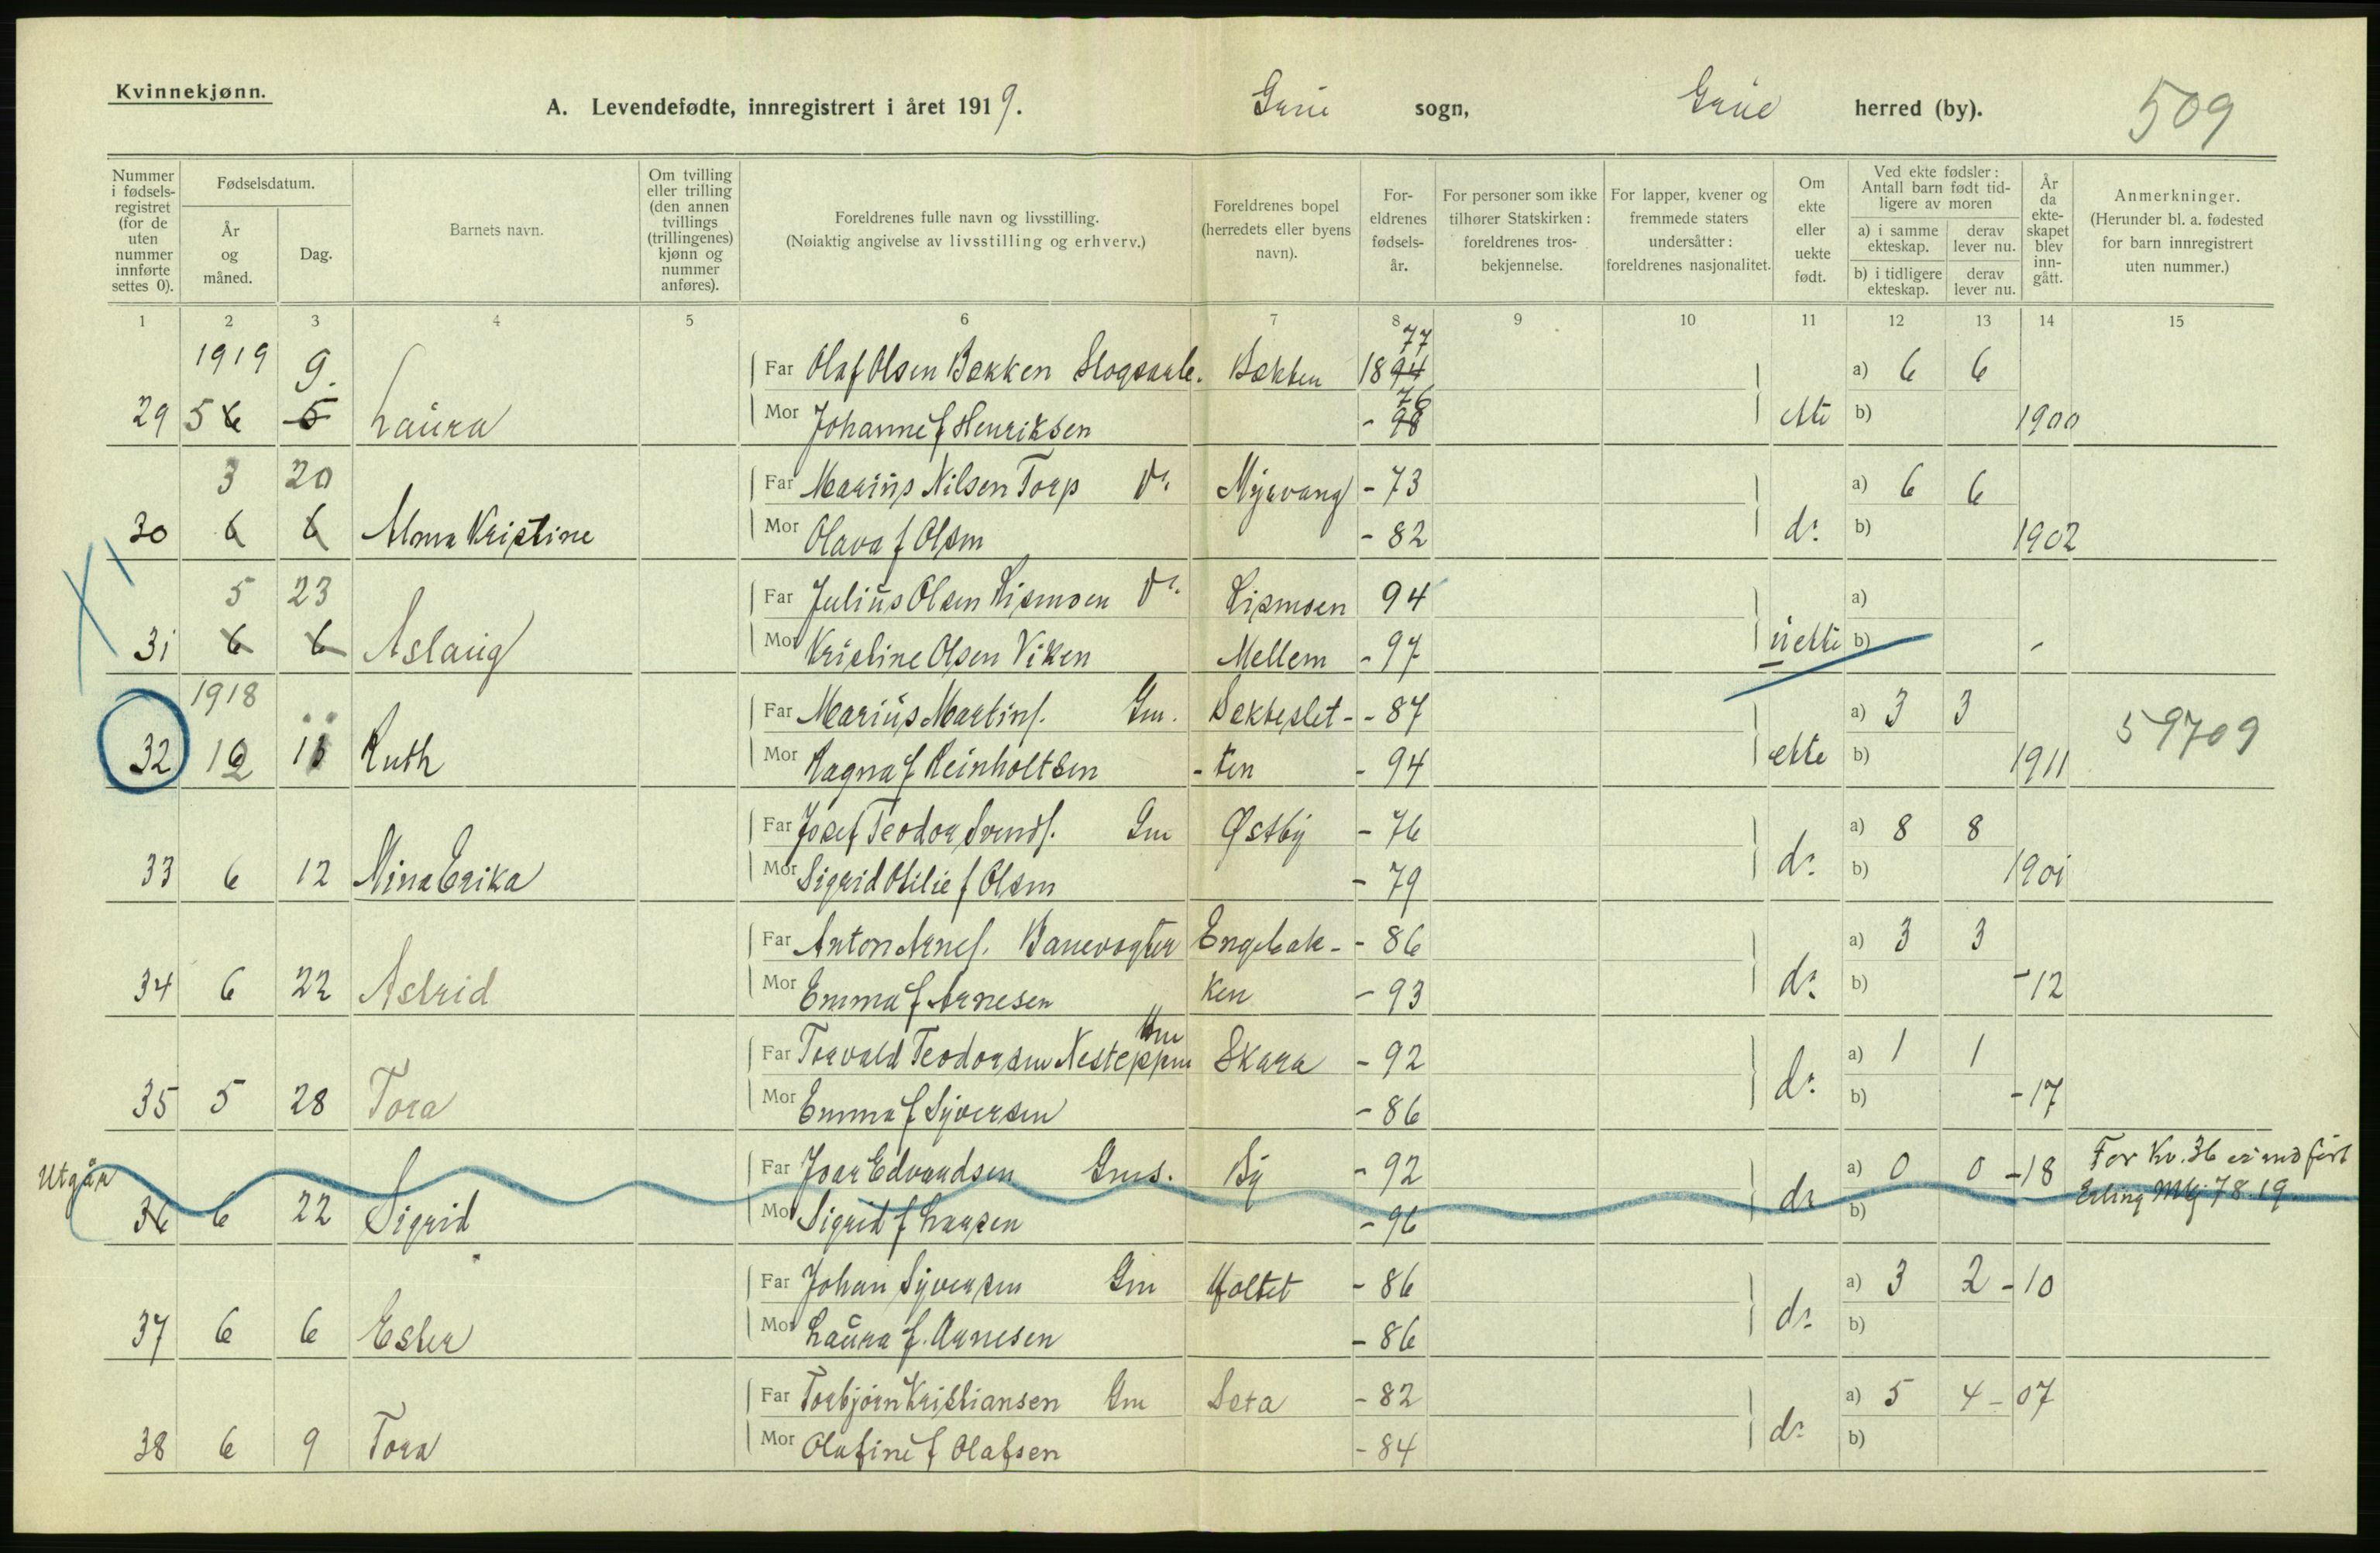 Kvinnekjønn.
A. Levendefødte, innregistrert i året 1919. Grue sogn, Grue herred (by). 509
Nummer i fødsels-registret (for de uten nummer innførte settes 0).
Fødselsdatum.
År og måned.
Dag.
Barnets navn.
Om tvilling eller trilling (den annen tvillings (trillingenes) kjønn og nummer anføres).
Foreldrenes fulle navn og livsstilling.
(Nøiaktig angivelse av livsstilling og erhverv.)
Foreldrenes bopel (herredets eller byens navn).
For-eldrenes fødsels-år.
For personer som ikke tilhører Statskirken: foreldrenes tros-bekjennelse.
For lapper, kvener og fremmede staters undersåtter: foreldrenes nasjonalitet.
Om ekte eller uekte født.
Ved ekte fødsler: Antall barn født tid-ligere av moren
a) i samme ekteskap.
derav lever nu.
b) i tidligere ekteskap.
derav lever nu.
År da ekte-skapet blev inn-gått.
Anmerkninger.
(Herunder bl. a. fødested for barn innregistrert uten nummer.)
1 2 3 4 5 6 7 8 9 10 11 12 13 14 15
1919 9. Far Olaf Olsen Bekken Skogsarb. Bekken 1894 77 a) 6 6
29 5 6 5 Laura Mor Johanne f Henriksen - 98 76 ekte b) 1900
3 20 Far Marius Nilsen Torp do. Myrvang - 73 a) 6 6
30 6 6 Alma Kristine Mor Olava f Olsen - 82 do. b) 1902
5 23 Far Julius Olsen Lismoen do. Lismoen 94 a)
31 6 6 Aslaug Mor Kristine Olsen Viken Mellem - 97 uekte b) -
1918 Far Marius Martins. Gm. Bekkeslet- - 87 a) 3 3
32 12 11 Ruth Mor Ragna f Reinholtsen -ten - 94 ekte b) 1911 59709
Far Josef Teodor Svends. Gm Østby - 76 a) 8 8
33 6 12 Mina Erika Mor Sigrid Otilie f Olsen - 79 do. b) 1901
Far Anton Arnes. Banevogter Engebak- - 86 a) 3 3
34 6 22 Astrid Mor Emma f Arnesen ken - 93 do. b) -12
Far Torvald Teodorsen Nesteppen Gm Skara - 92 a) 1 1
35 5 28 Tora Mor Emma f Syversen - 86 do. b) -17
Utgår Far Joar Edvardsen Gms. By - 92 a) 0 0 -18 For Kv. 36 er indført
36 6 22 Sigrid Mor Sigrid f Larsen - 96 do b) Erling Mkj 78.19
Far Johan Syversen Gm Holtet - 86 a) 3 2 -10
37 6 6 Ester Mor Laura f. Arnesen - 86 do. b)
Far Torbjørn Kristiansen Gm Seta - 82 a) 5 4 - 07
38 6 9 Tora Mor Olafine f Olafsen - 84 do. b)